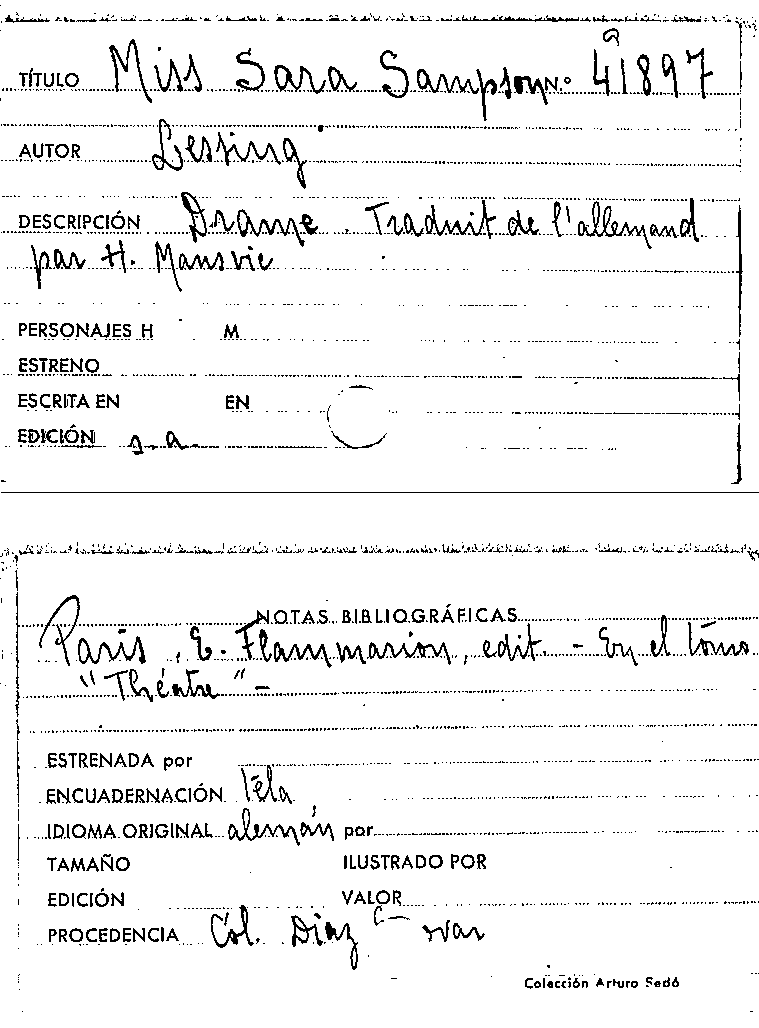 TÍTULO Miss Sara Sampson N.º 41897
AUTOR Lessing
DESCRIPCIÓN Drame. Traduit de l'allemand
par H. Mansvic
PERSONAJES H M
ESTRENO
ESCRITA EN EN
EDICIÓN s.a.
NOTAS BIBLIOGRÁFICAS
Paris, E. Flammarion, edit. - En el tomo
"Théatre" -
ESTRENADA por
ENCUADERNACIÓN Tela
IDIOMA ORIGINAL alemán por
TAMAÑO ILUSTRADO POR
EDICIÓN VALOR
PROCEDENCIA Col. Diaz
Colección Arturo Sedó